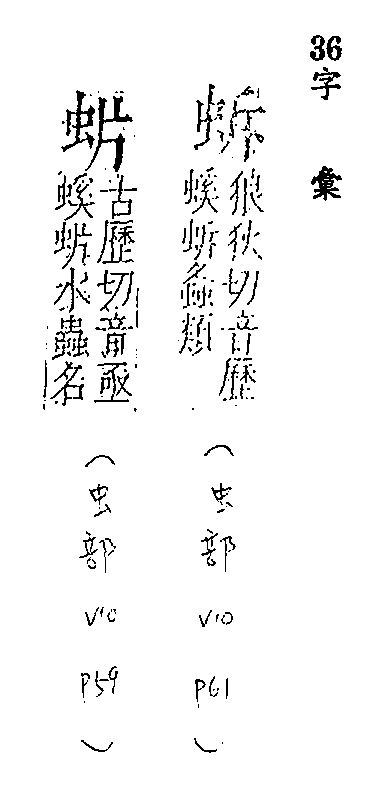 36
字彙
狼狄切音歷
螇蚸
類
(虫部 V10 P61)
古歷切音亟
螇
水蟲名
(虫部 V10 P59)